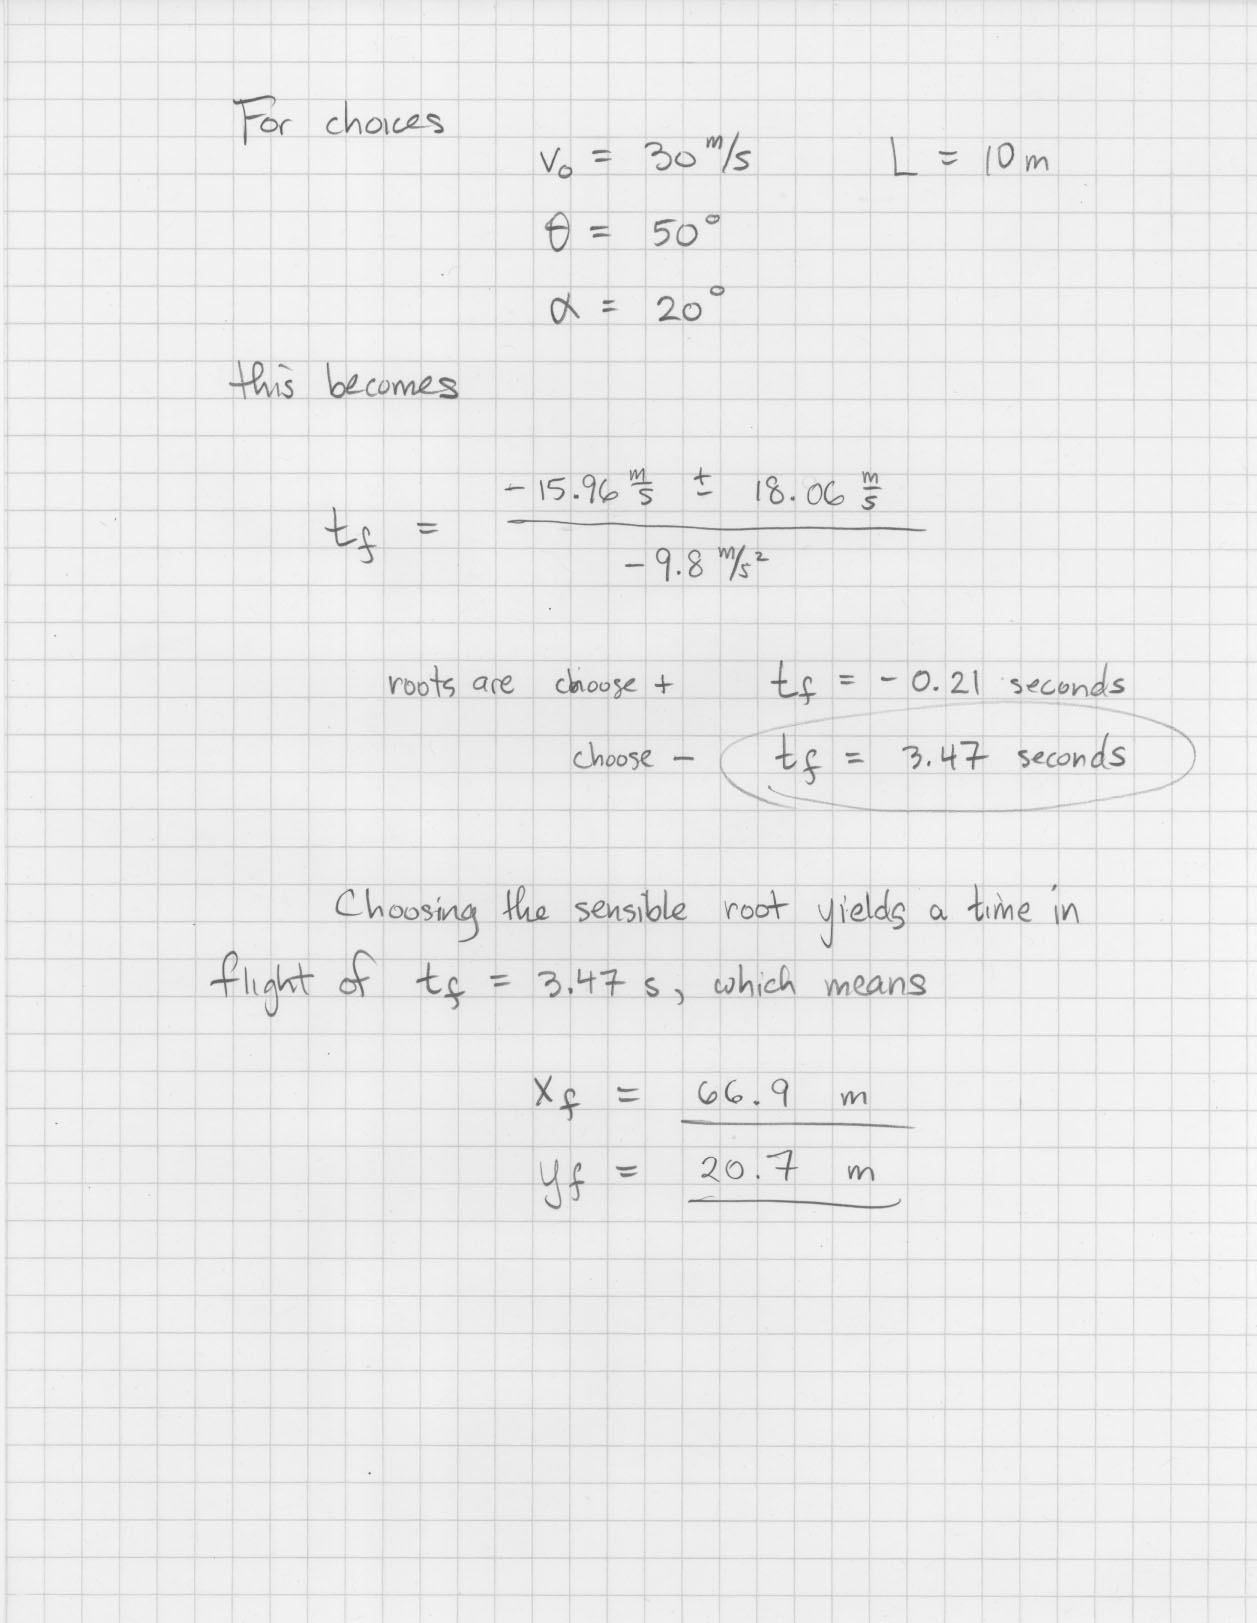 For choices
v₀ = 30 m/s L = 10 m
θ = 50°
α = 20°
this becomes
t_f = (-15.96 m/s ± 18.06 m/s) / (-9.8 m/s²)
roots are choose + t_f = - 0.21 seconds
choose - t_f = 3.47 seconds
Choosing the sensible root yields a time in
flight of t_f = 3.47 s, which means
x_f = 66.9 m
y_f = 20.7 m